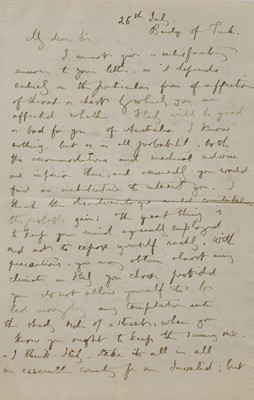 26th July.
Bridge of Turk.
My dear Sir
I cannot give a satisfactory
answer to your letter, as it depends
entirely on the particular form of affection
of throat or chest by which you are
affected whether Italy will be good
or bad for you. Of Australia I know
nothing, but as in all probability, both
the accommodations and medical advice
are inferior there, and assuredly you would
find no architecture to interest you, I
think the disadvantages would counterbalance
the probable gain: The great thing is
to keep your mind agreeably employed
and not to expose yourself rashly. With
precautions, you may obtain almost any
climate in Italy you choose provided
you do not allow yourself to be
led through any temptation into
the shady side of a street, when you
know you ought to keep the sunny one.
- I think Italy - take it all in all
an excellent country for an Invalid; but